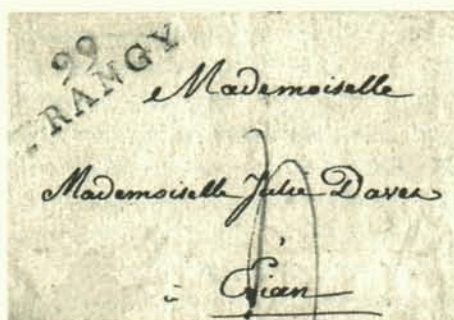 99
RANGY
Mademoiselle
Mademoiselle Julie Davet
à Evian